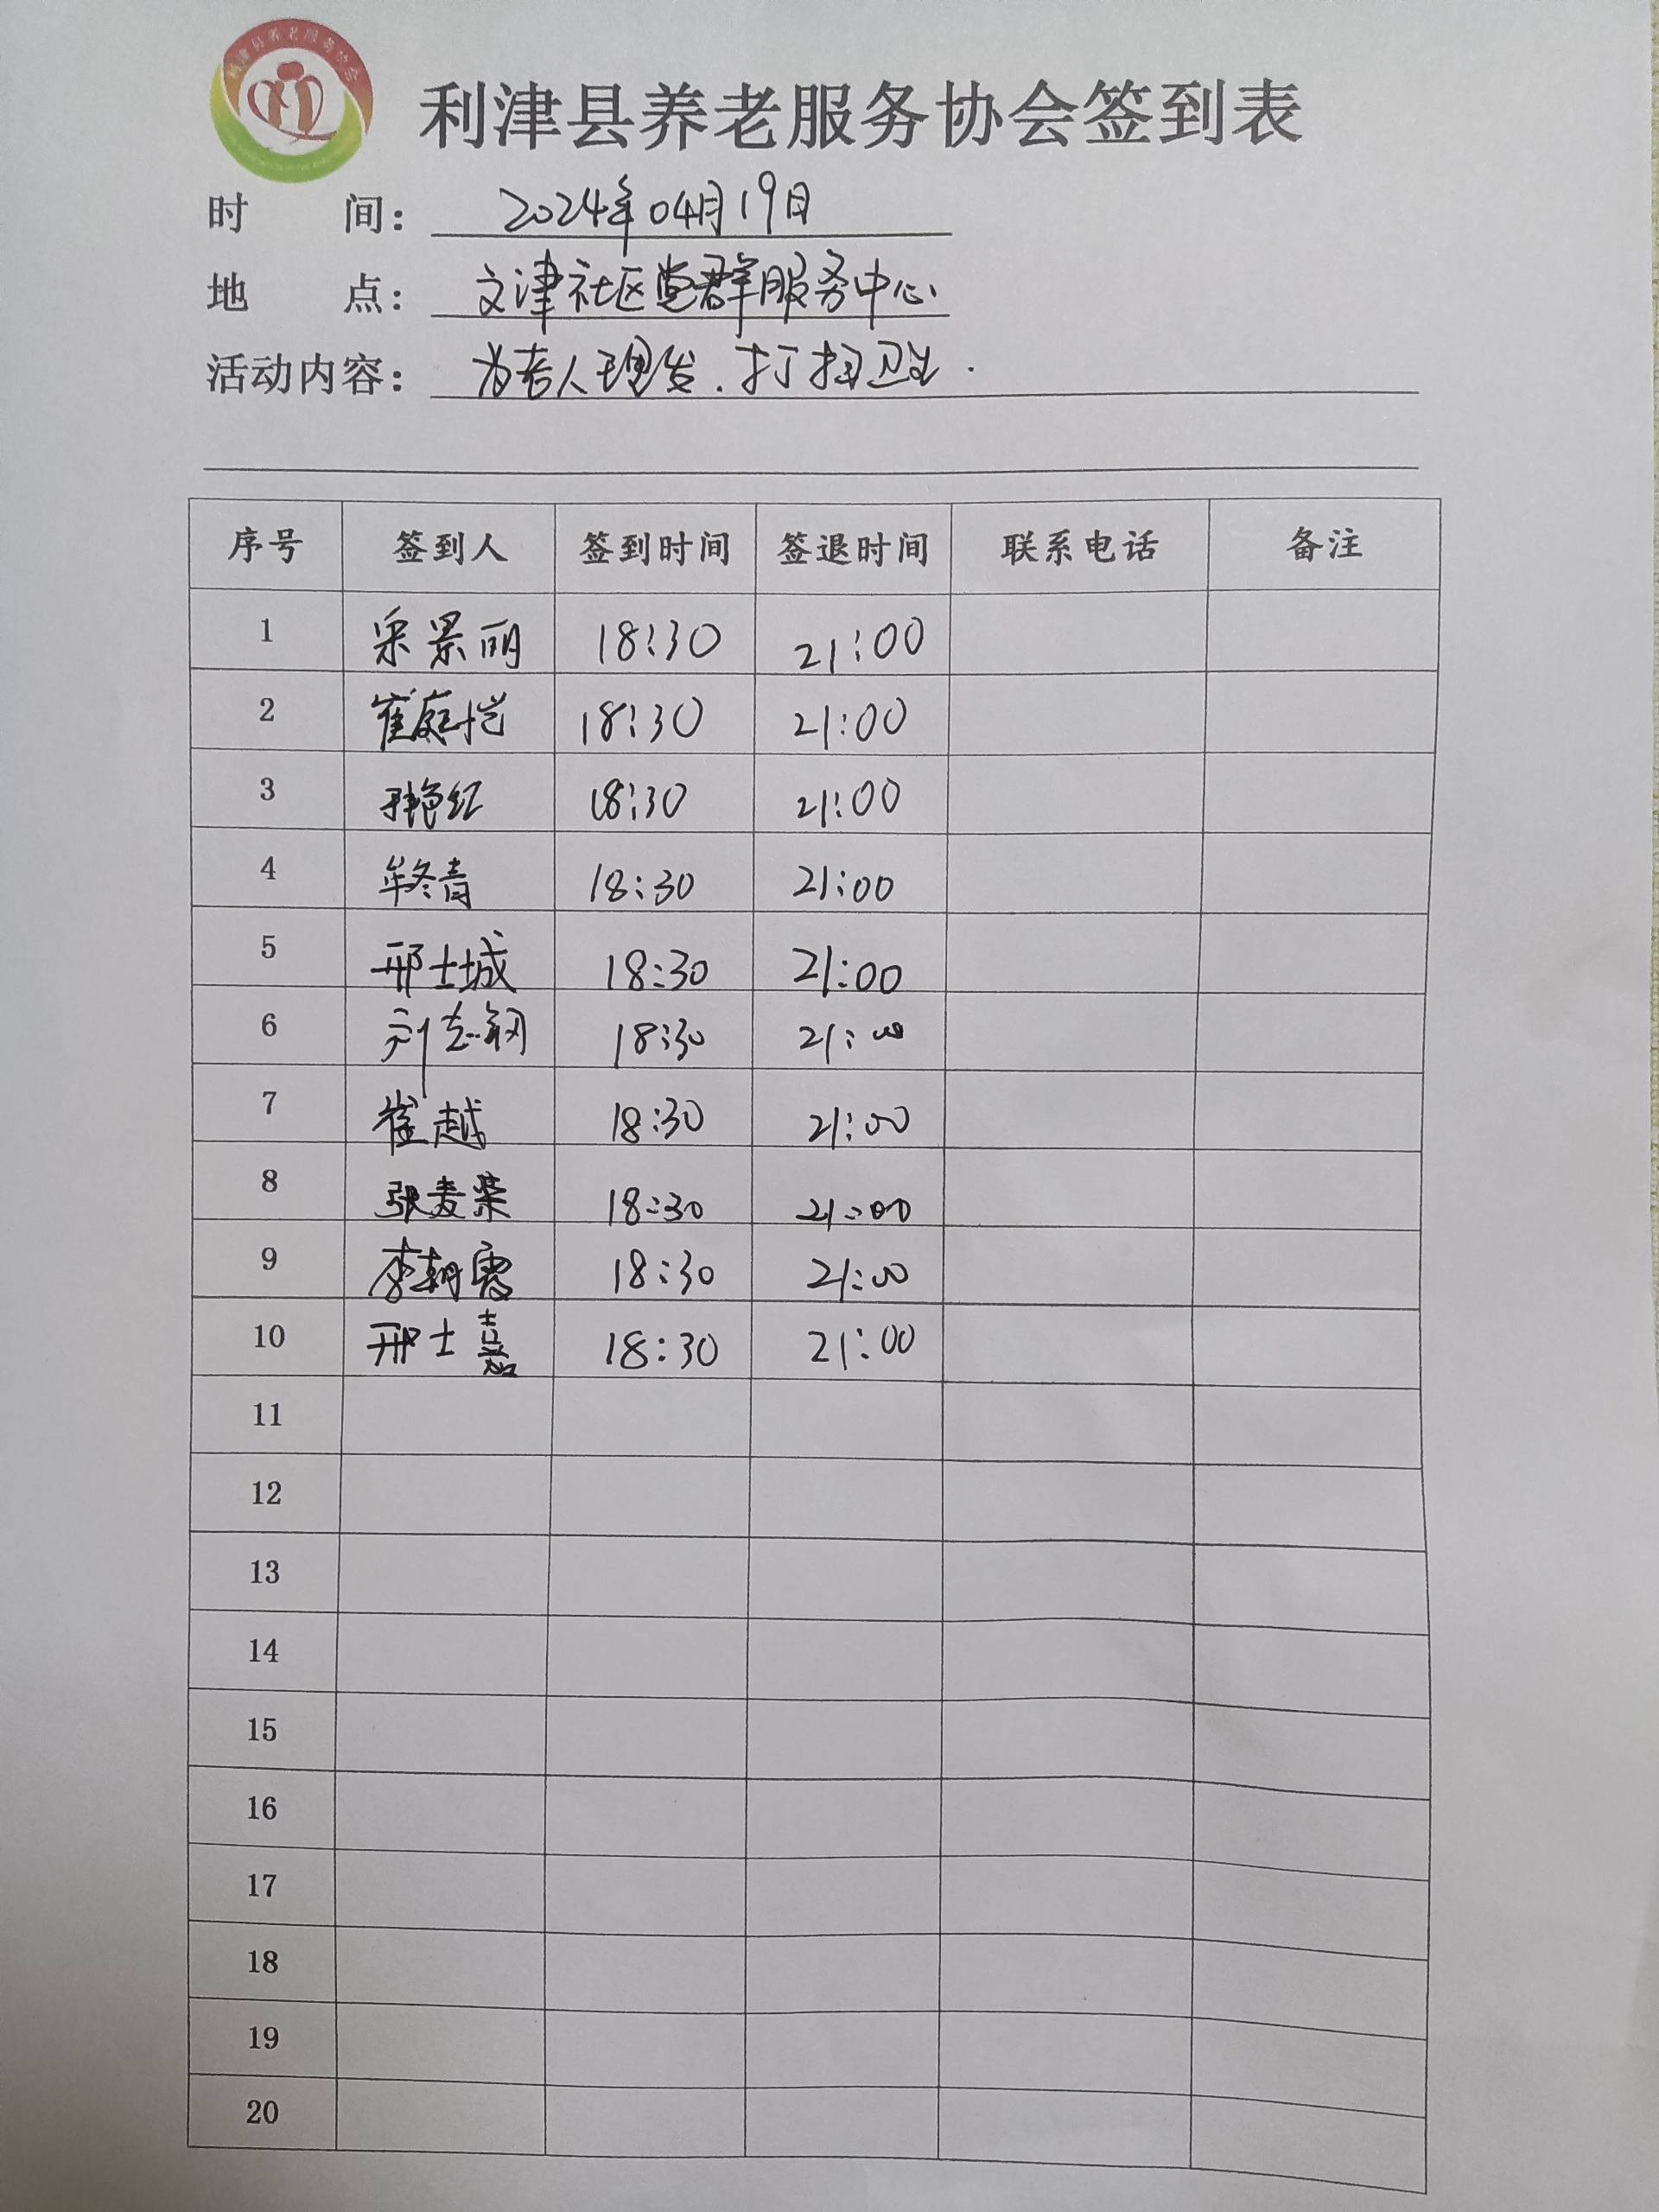 利津县养老服务协会
利津县养老服务协会签到表
时 间： 2024年04月19日
地 点： 文津社区党群服务中心
活动内容： 为老人理发．打扫卫生．
序号 签到人 签到时间 签退时间 联系电话 备注
1 景丽 18:30 21:00
2 崔庭恺 18:30 21:00
3 艳红 18:30 21:00
4 牟冬青 18:30 21:00
5 邢士城 18:30 21:00
6 刘志钢 18:30 21:00
7 崔越 18:30 21:00
8 张麦荣 18:30 21:00
9 李朝霞 18:30 21:00
10 邢士嘉 18:30 21:00
11
12
13
14
15
16
17
18
19
20